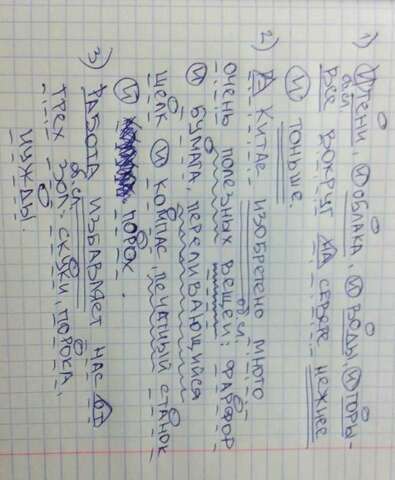 1) И тени, и облака, и воды, и горы-
об.сл
все вокруг на севере нежнее
и тоньше.
2) В Китае изобретено много
об.сл
очень полезных вещей: фарфор
и бумага, переливающийся
шелк и компас, печатный станок
и порох.
3) Работа избавляет нас от
об.сл
трех зол: скуки, порока,
нужды.